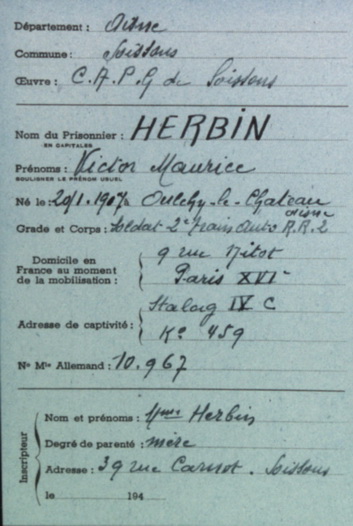 Département : Aisne
Commune : Soissons
Œuvre : C.A.P.G de Soissons
Nom du Prisonnier : HERBIN
EN CAPITALES
Prénoms : Victor Maurice
SOULIGNER LE PRÉNOM USUEL
Né le : 20/1.1907 à Oulchy-le-Chateau
Aisne
Grade et Corps : Soldat 2e train auto R.R.2
Domicile en
France au moment
de la mobilisation :
9 rue Nitot
Paris XVI
Stalag IV C
Adresse de captivité :
Ko 459
No Mle Allemand : 10.967
Inscripteur
Nom et prénoms : Mme Herbin
Degré de parenté : mère
Adresse : 39 rue Carnot. Soissons
le 194